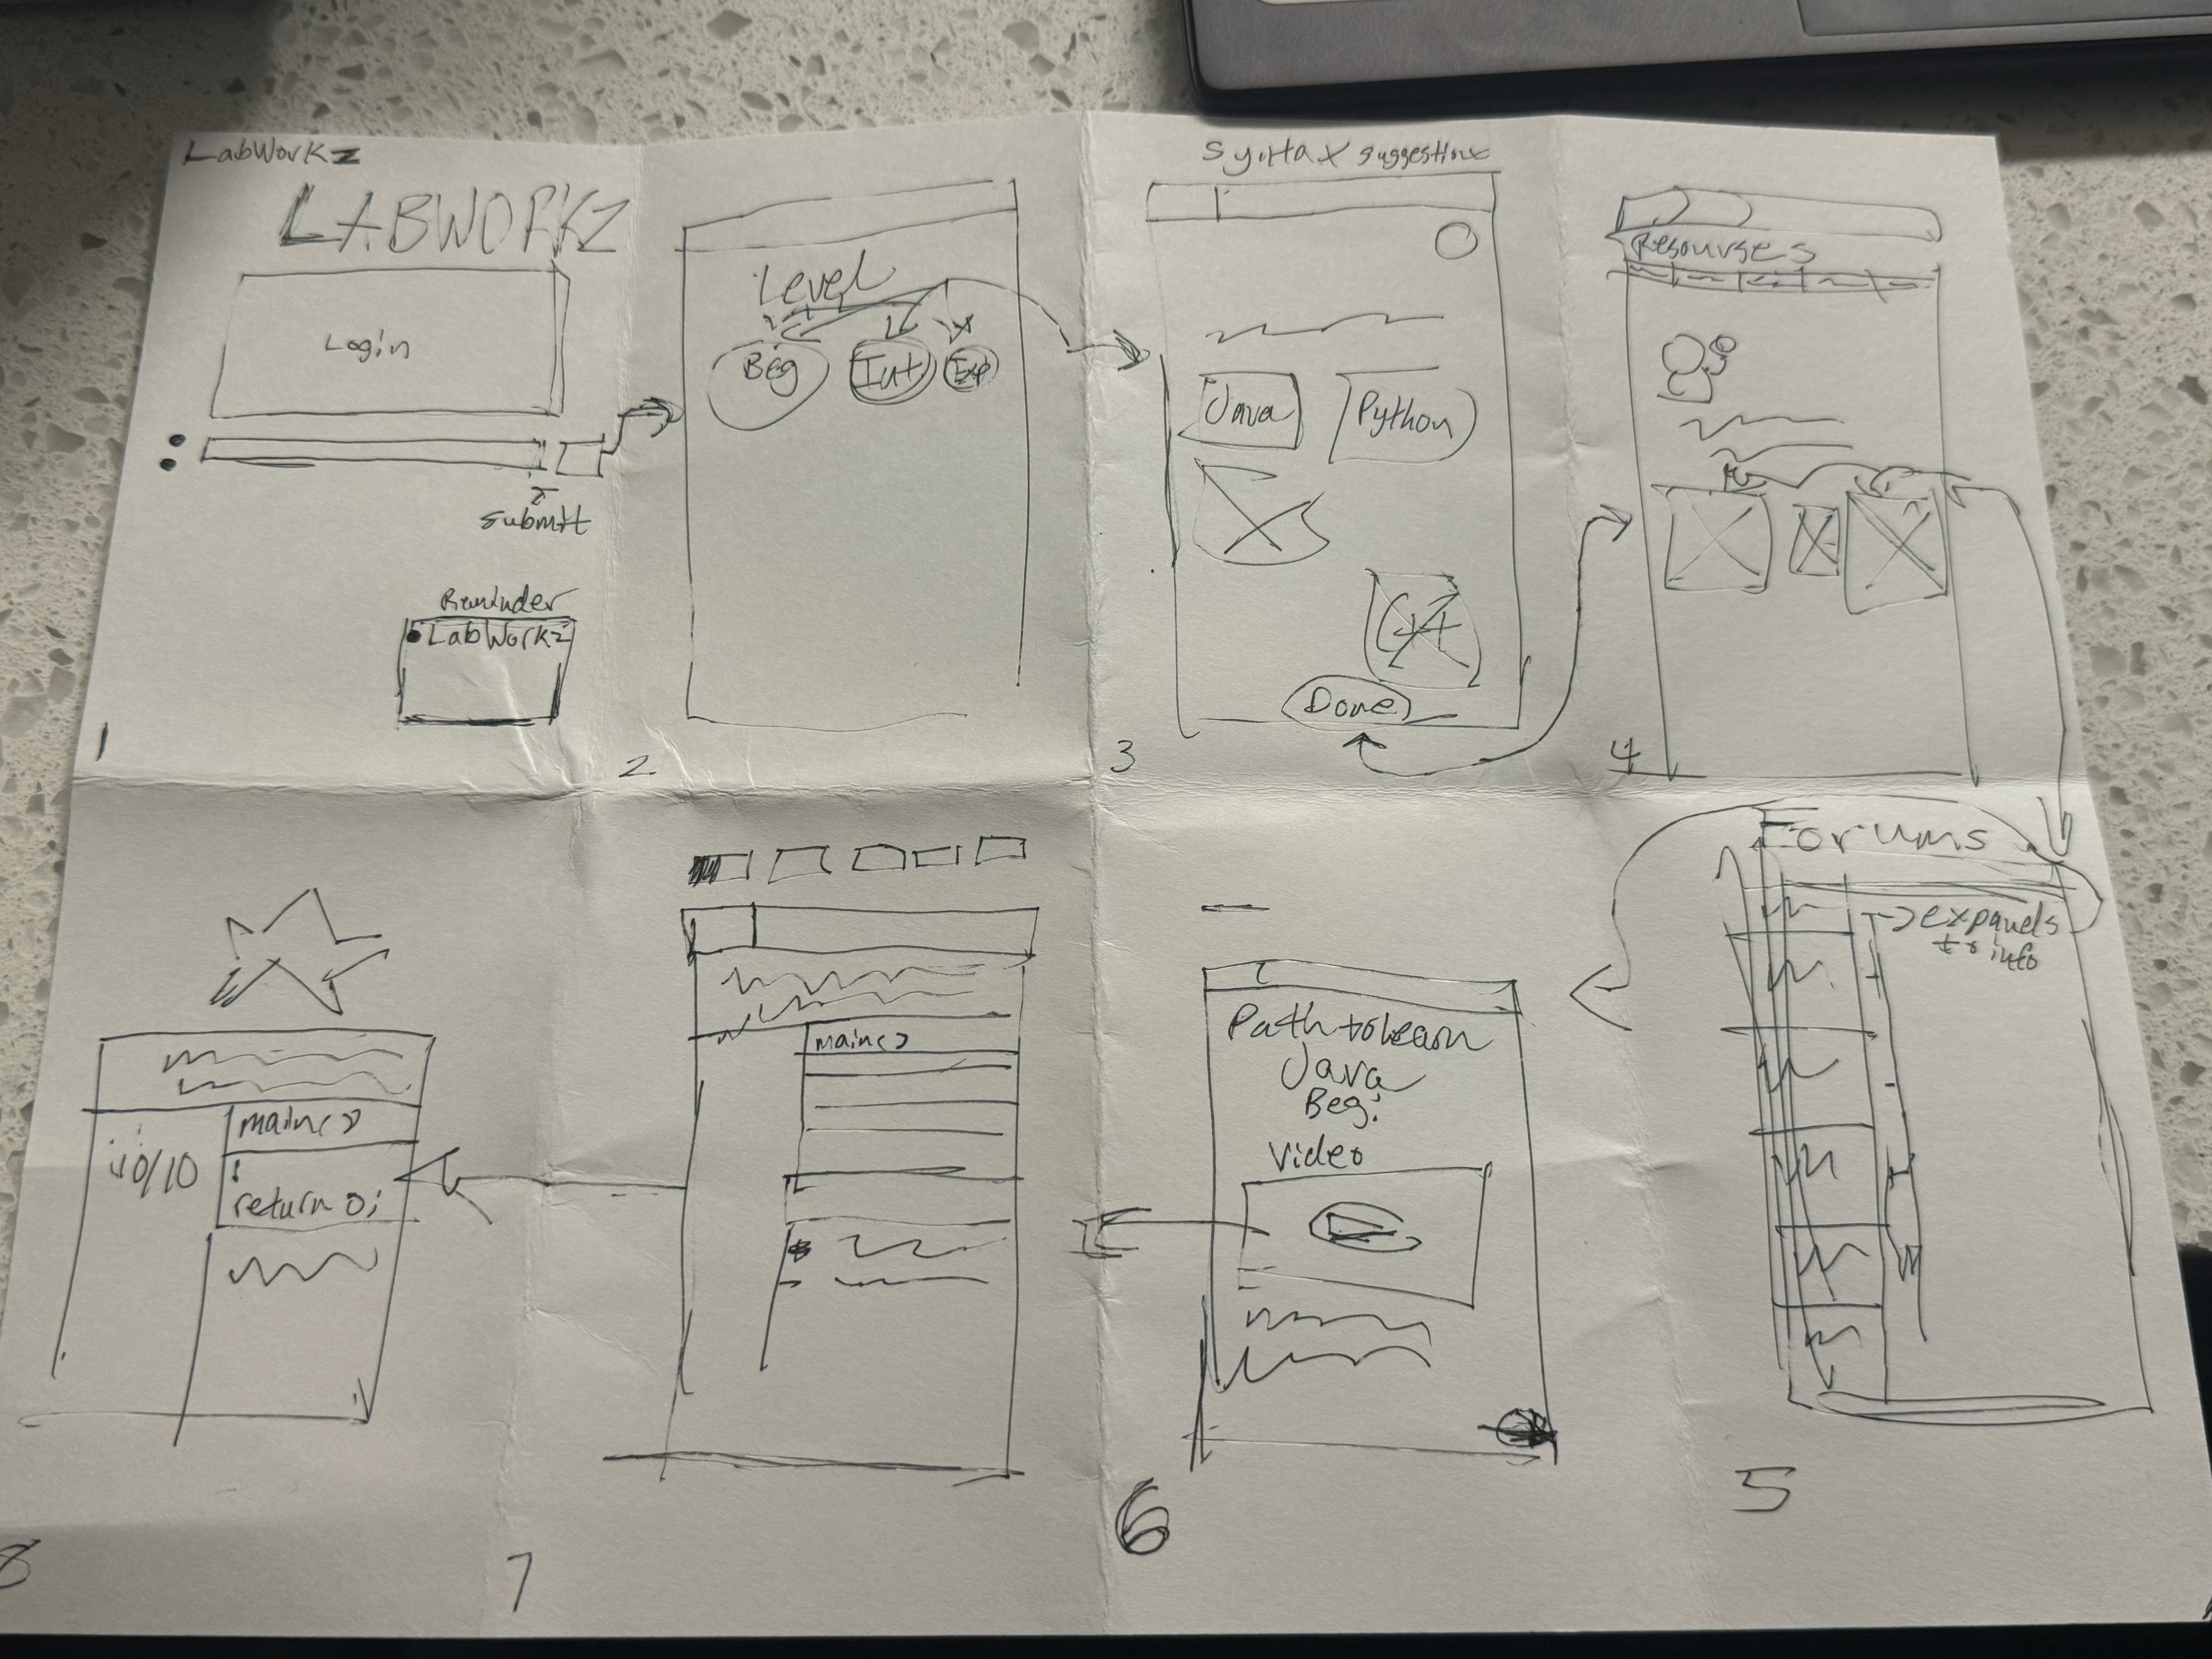 LabWorkz
LABWORKZ
Login
Submit
Reminder
LabWorkz
1
Level
Beg
Int
Exp
2
Syntax suggestions
Java
Python
C++
Done
3
Resourses
4
Forums
expands
to info
5
Path to learn
Java
Beg:
Video
6
main()
7
main()
10/10
return 0;
8